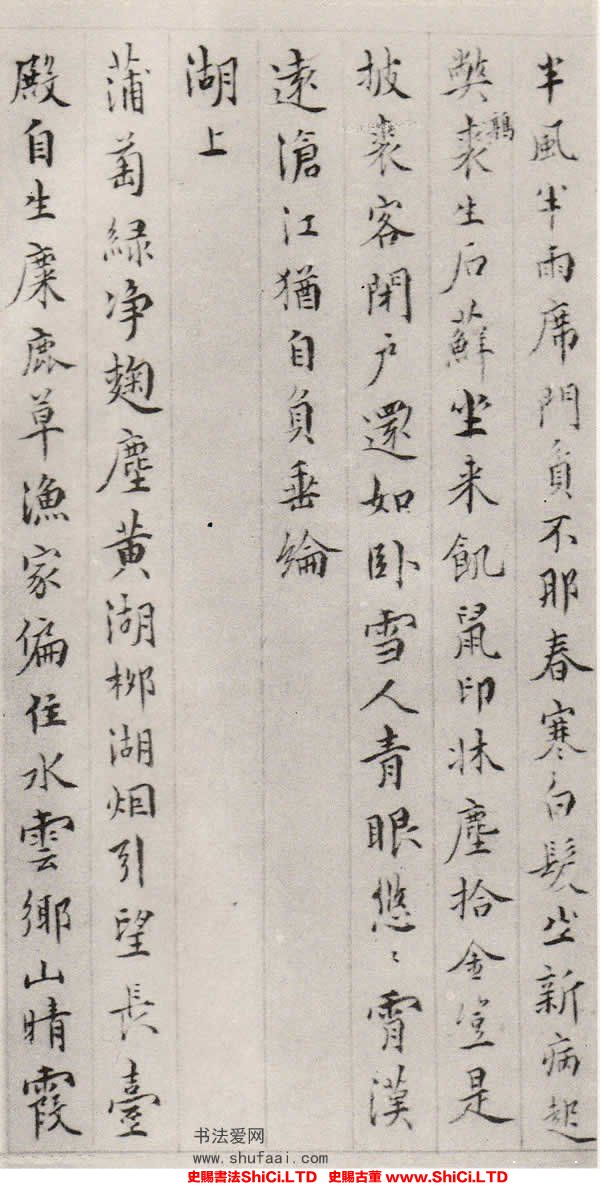 半風半雨席門貧不那春寒白髮坐新病起
獘裘生石蘚坐来飢鼠印牀塵拾金豈是
鶉
披裘客閉户還如卧雪人青眼悠〻霄漢
遠滄江猶自負垂綸
湖上
蒲萄緑净麴塵黄湖柳湖烟引望長臺
殿自生麋鹿草漁家偏住水雲鄉山晴霞
书法爱网
www.shufaai.com
史賜書法ShiCi.LTD 史賜古董 www.ShiCi.LTD